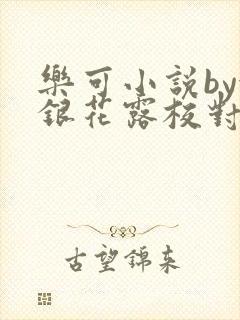 樂可小說by
銀花露枝對
古望錦來